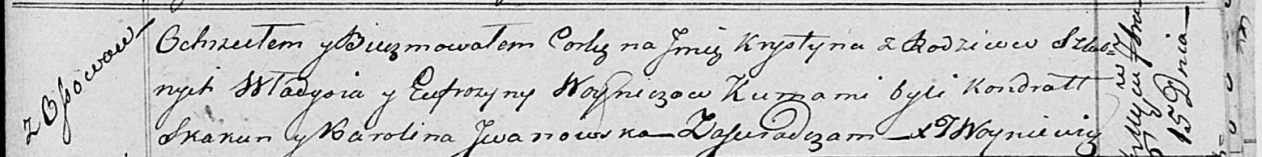 z Osowow
Ochrzciłem y Bierzmowałem Corkę na Jmię Krystyna z Rodzicow Szlub=
nych Władysia y Eufrozyny Woyniczow Kumami byli Kondratt
Skakun y Karolina Jwanowska – Zaświadczam – X J Woyniewicz
15 Dnia